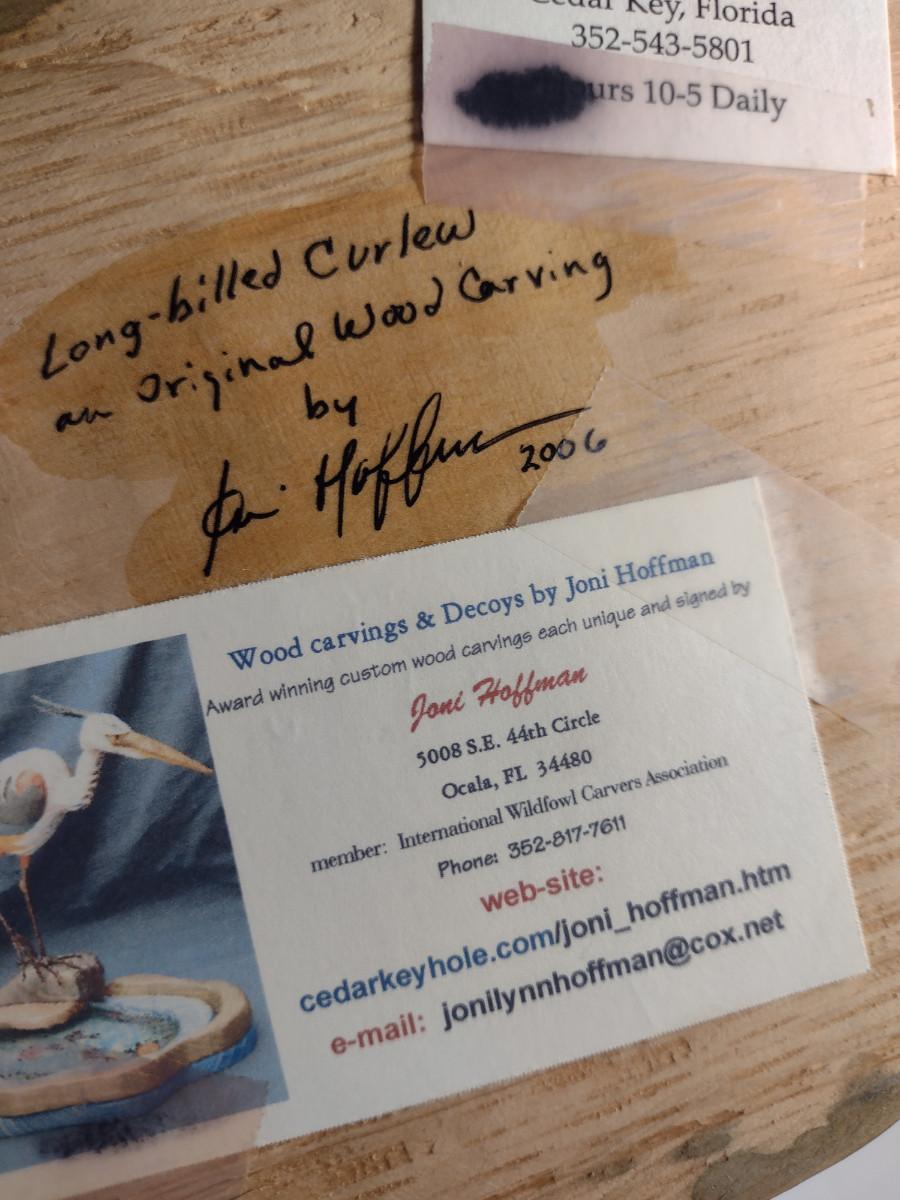 Cedar Key, Florida
352-543-5801
urs 10-5 Daily
Long-billed Curlew
an Original Wood Carving
by
Joni Hoffman
2006
Wood carvings & Decoys by Joni Hoffman
Award winning custom wood carvings each unique and signed by
Joni Hoffman
5008 S.E. 44th Circle
Ocala, FL 34480
member: International Wildfowl Carvers Association
Phone: 352-817-7611
web-site:
cedarkeyhole.com/joni_hoffman.htm
e-mail: jonilynnhoffman@cox.net